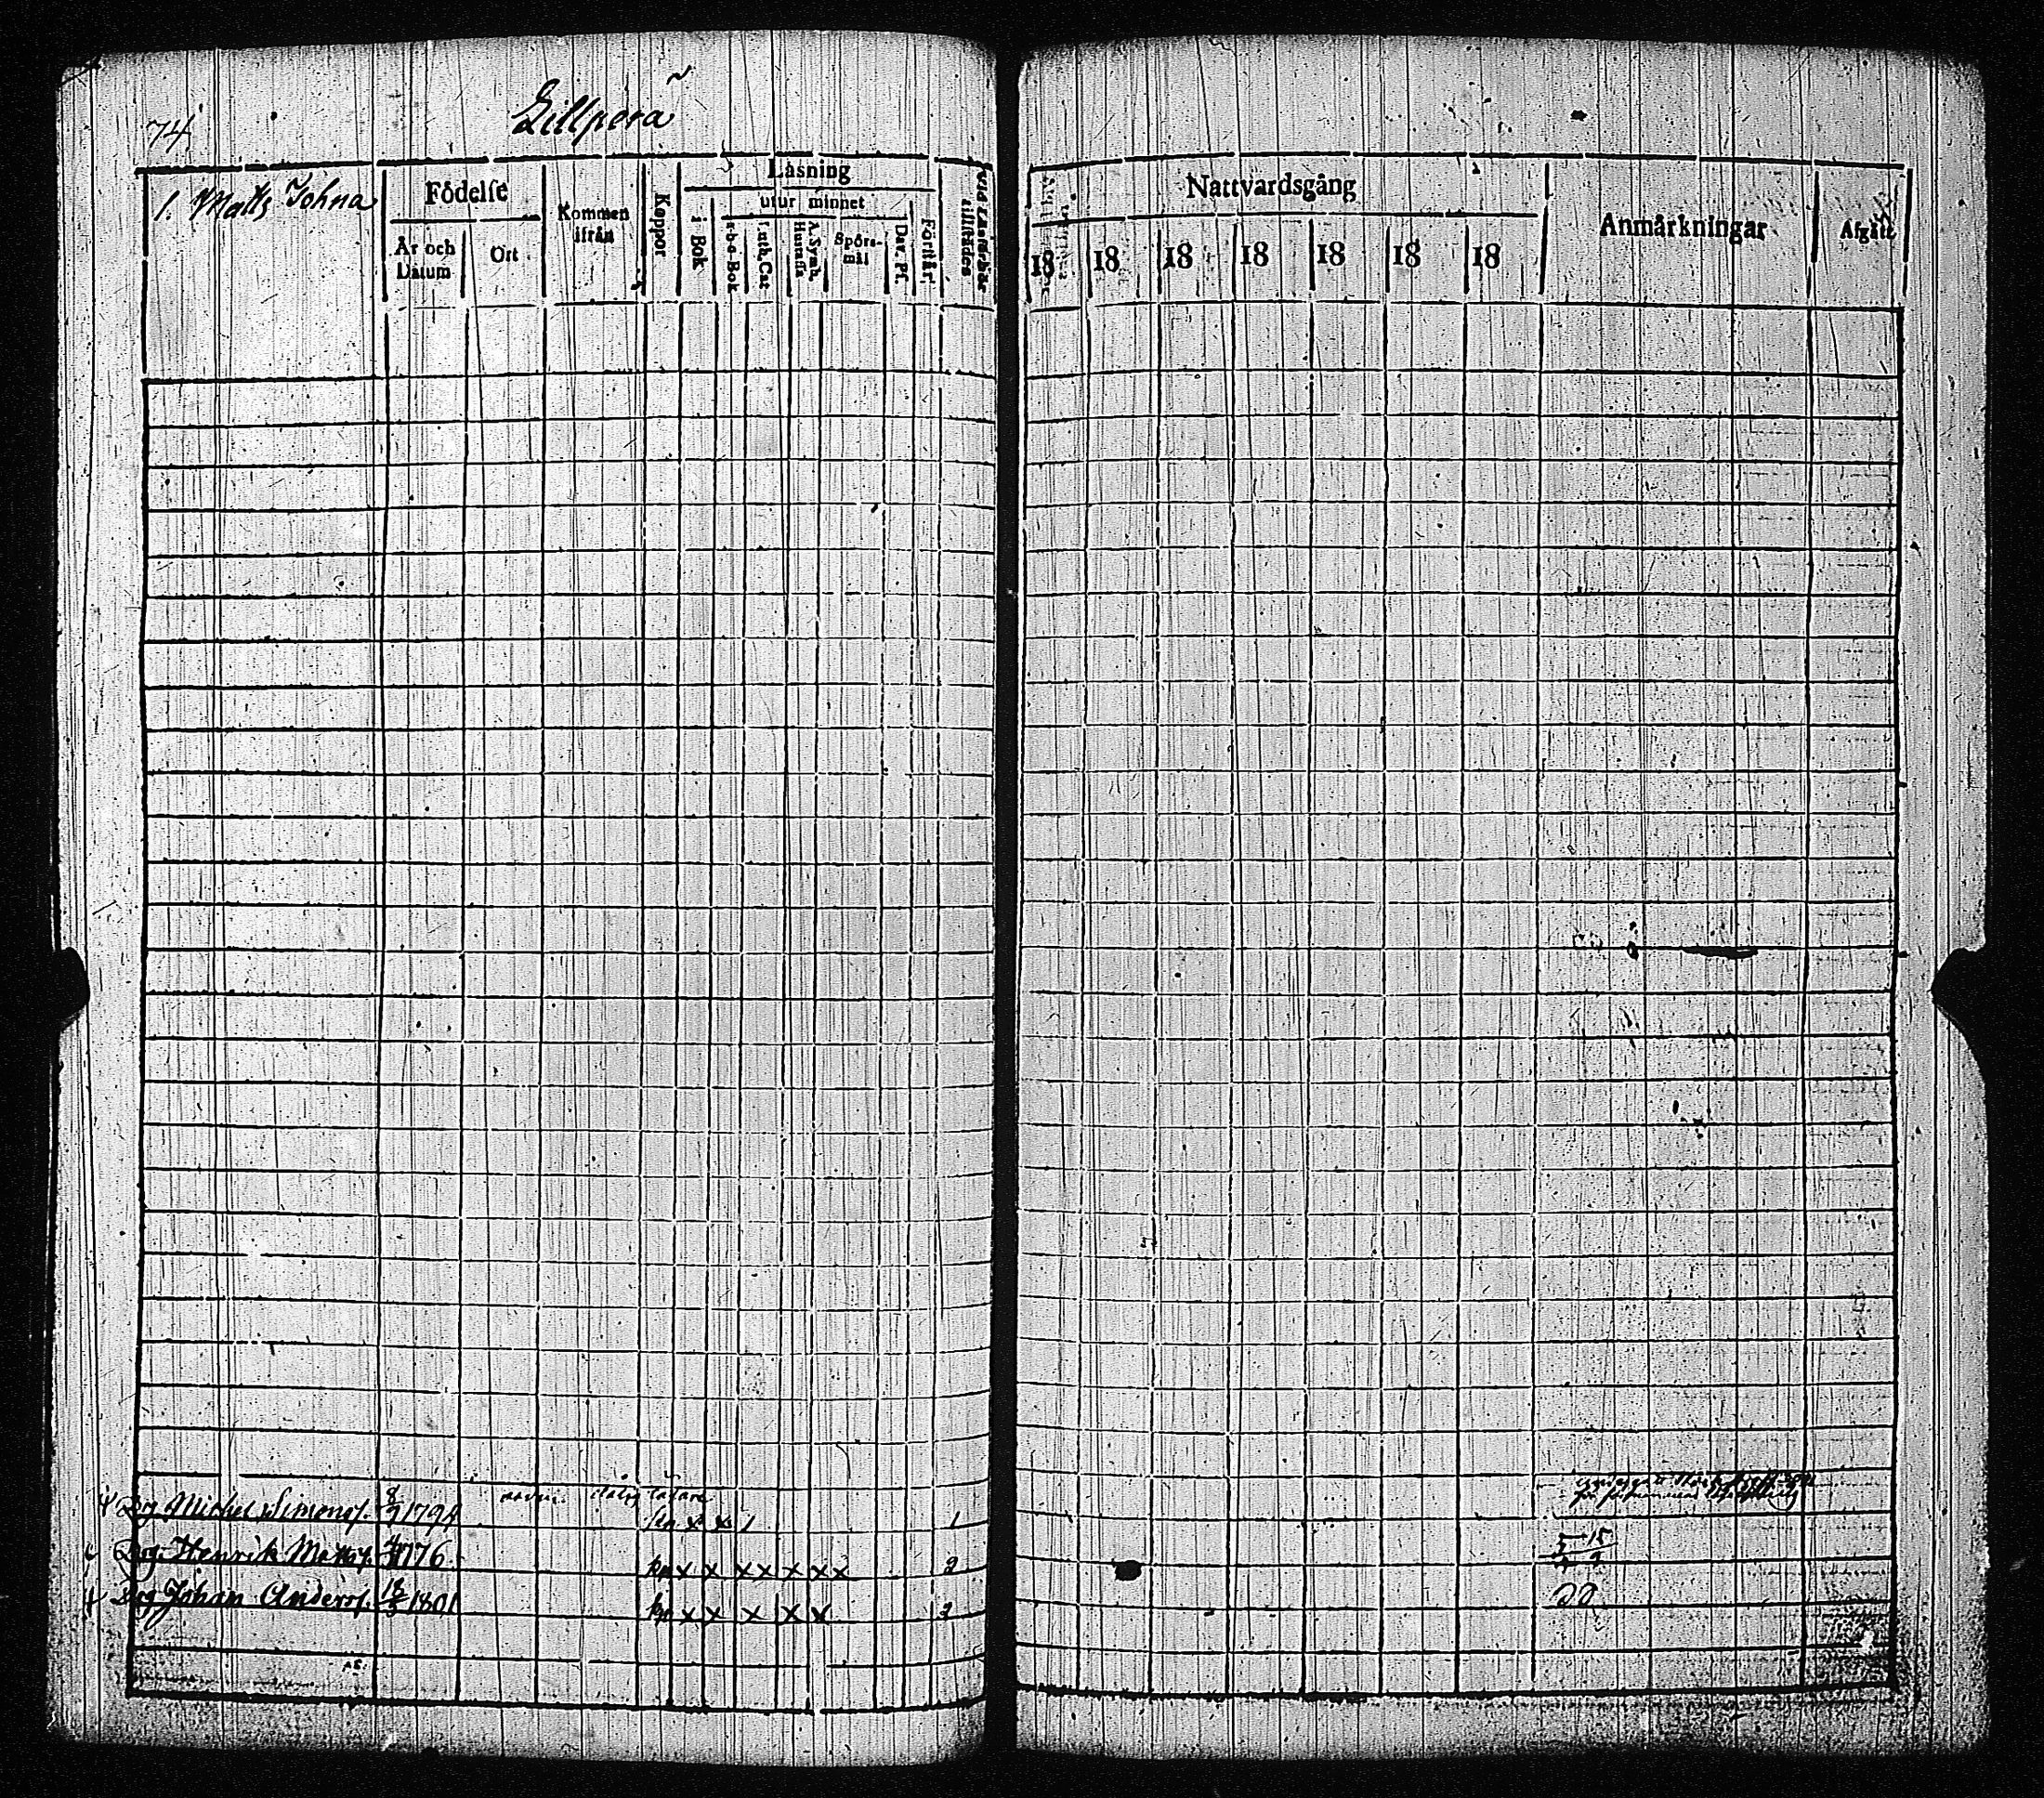 74
Lillpera
1. Matts Johna
Födelse
År och Datum
Ort
Kommen ifrån
Koppor
Läsning
i Bok
utur minnet
a-b-c-Bok
Luth. Cat
A. Symb. Hustafla
Spörs-mål
Dav. Ps.
Förstår
Vid Läsförhör tillstädes
Nattvardsgång
18 18 18 18 18 18 18
Anmärkningar
Afgått
Drg Michel Simonss. 8/9 1794
kp x x 1 1
Drg. Henrik Mattss. 1776
kp x x x x x x x 2
Drg Johan Anderss. 1801
kp x x x x x 2